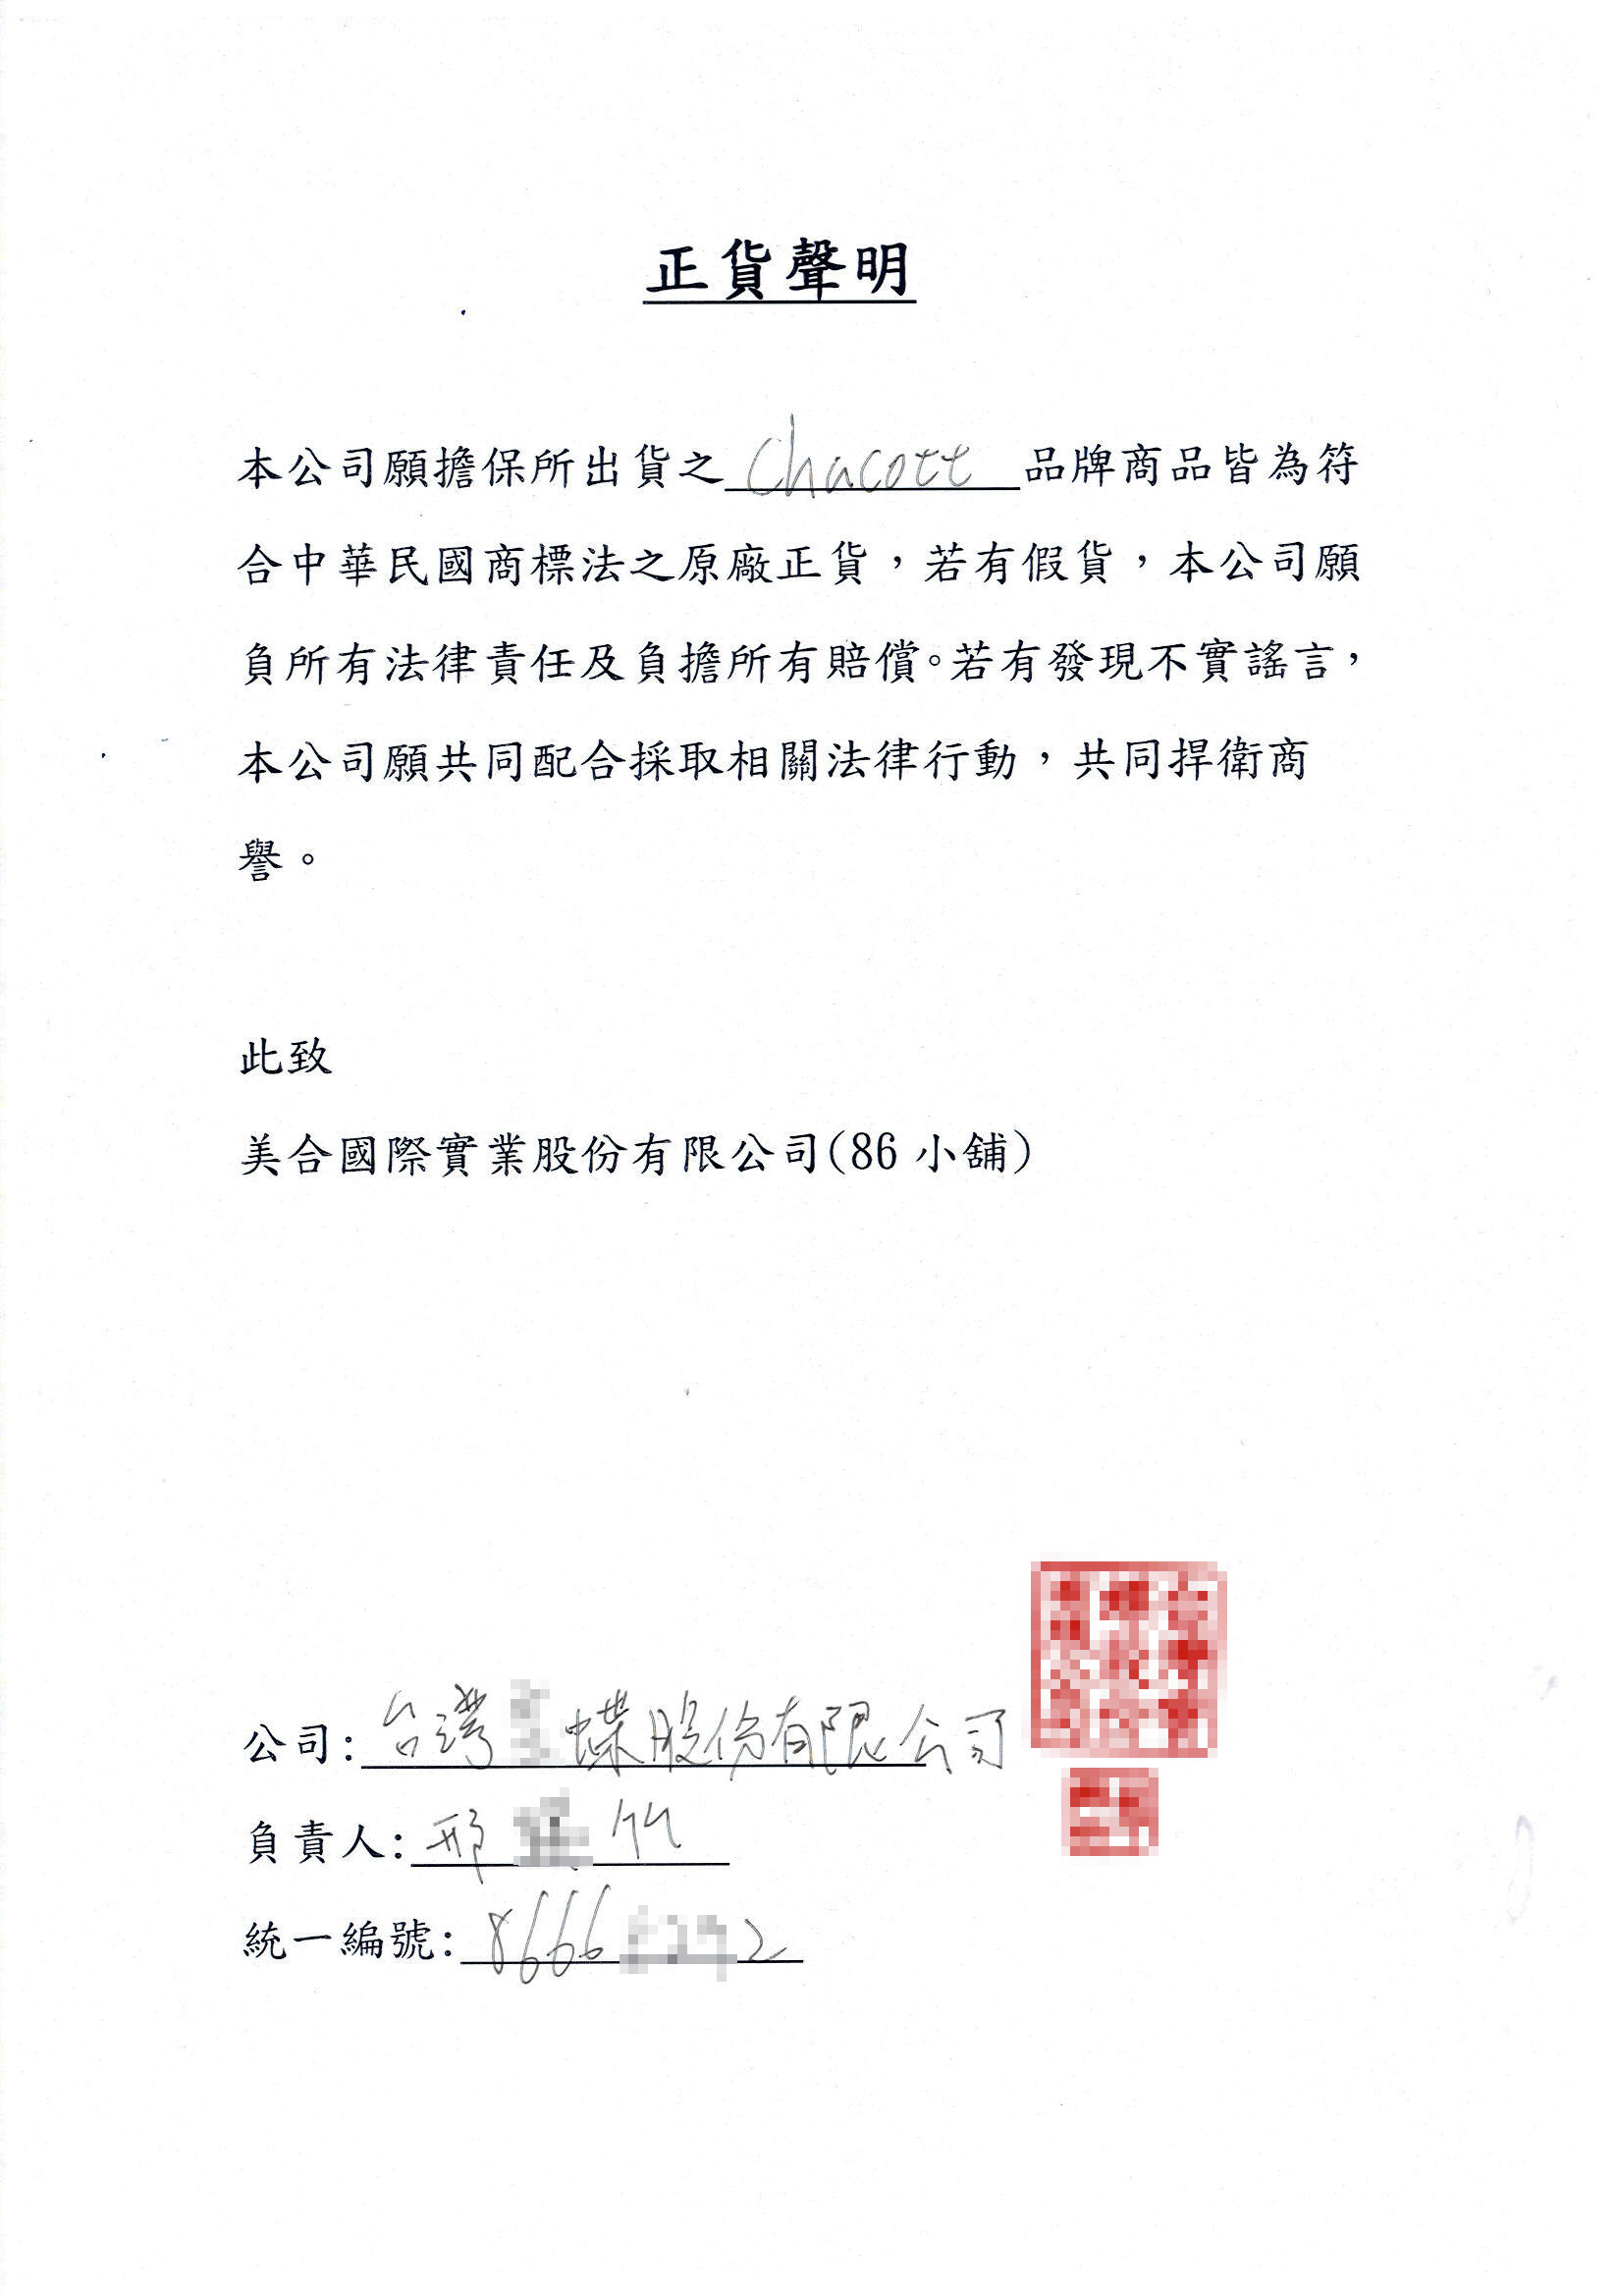 正貨聲明
本公司願擔保所出貨之 Chacott 品牌商品皆為符
合中華民國商標法之原廠正貨，若有假貨，本公司願
負所有法律責任及負擔所有賠償。若有發現不實謠言，
本公司願共同配合採取相關法律行動，共同捍衛商
譽。
此致
美合國際實業股份有限公司(86 小舖)
公司: 台灣 蝶股份有限公司
負責人: 邢
統一編號: 8666 2